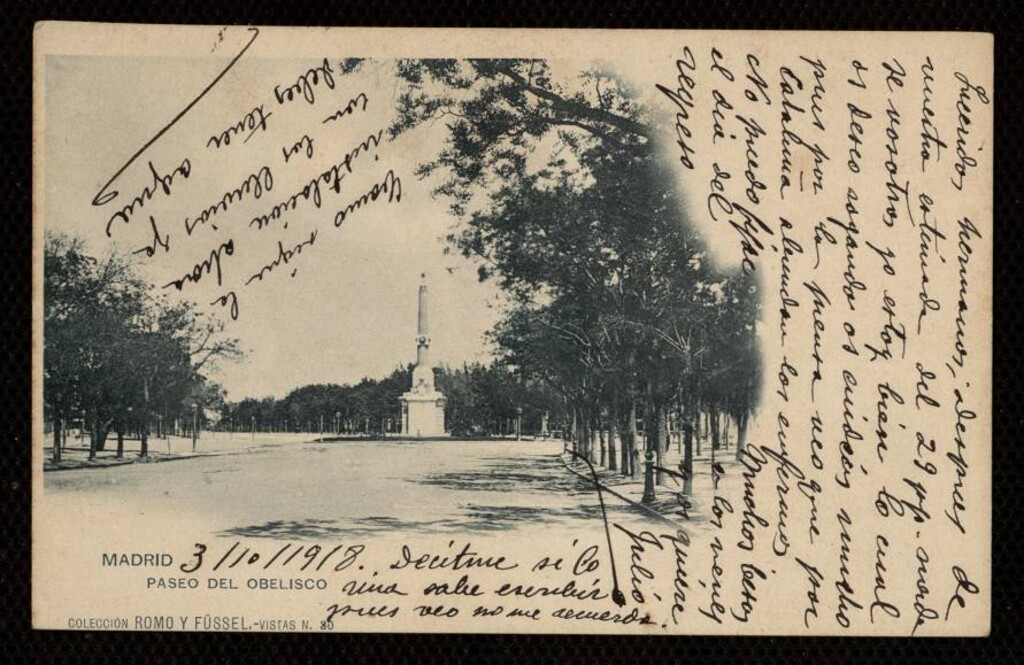 Queridos hermanos, despues de
vuestra estimada del 29 pp. nada
se vosotros yo estoy bien lo cual
os deseo rogando os cuideis mucho
pues por la prensa veo que por
Cataluña abundan los enfermos
No puedo fijar
el dia del
regreso
Muchos besos
a los nenes
quiere
Julio
Como sigue la
instalacion ahora
con las lluvias ya
debes tener agua
MADRID 3/10/1918. Decitme si lo
PASEO DEL OBELISCO
una sabe escribir
pues veo no me acuerdo.
COLECCIÓN ROMO Y FÜSSEL.-VISTAS N. 30